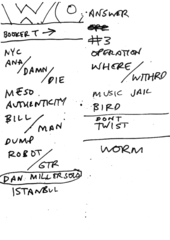 W/O
BOOKER T →
NYC
ANA/
DAMN/
DIE
MESD.
AUTHENTICITY
BILL/
MAN
DUMP
ROBOT/
GTR
DAN MILLER SOLO
ISTANBUL
ANSWER
#3
OPERATION
WHERE/
WITHRD
MUSIC JAIL
BIRD
DONT
TWIST
WORM